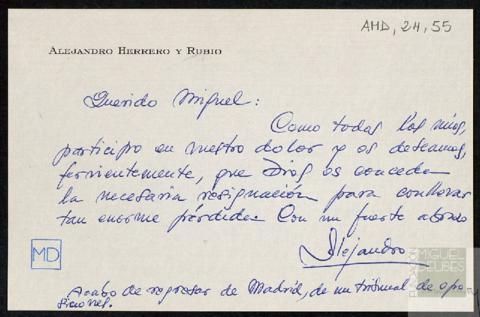 AMD, 24, 55
ALEJANDRO HERRERO Y RUBIO
Querido Miguel:
Como todos los míos,
participo en vuestro dolor y os deseamos,
fervientemente, que Dios os conceda
la necesaria resignación para conllevar
tan enorme pérdida. Con un fuerte abrazo
Alejandro
MD
FUNDACIÓN
MIGUEL
DELIBES
Acabo de regresar de Madrid, de un tribunal de opo
siciones.